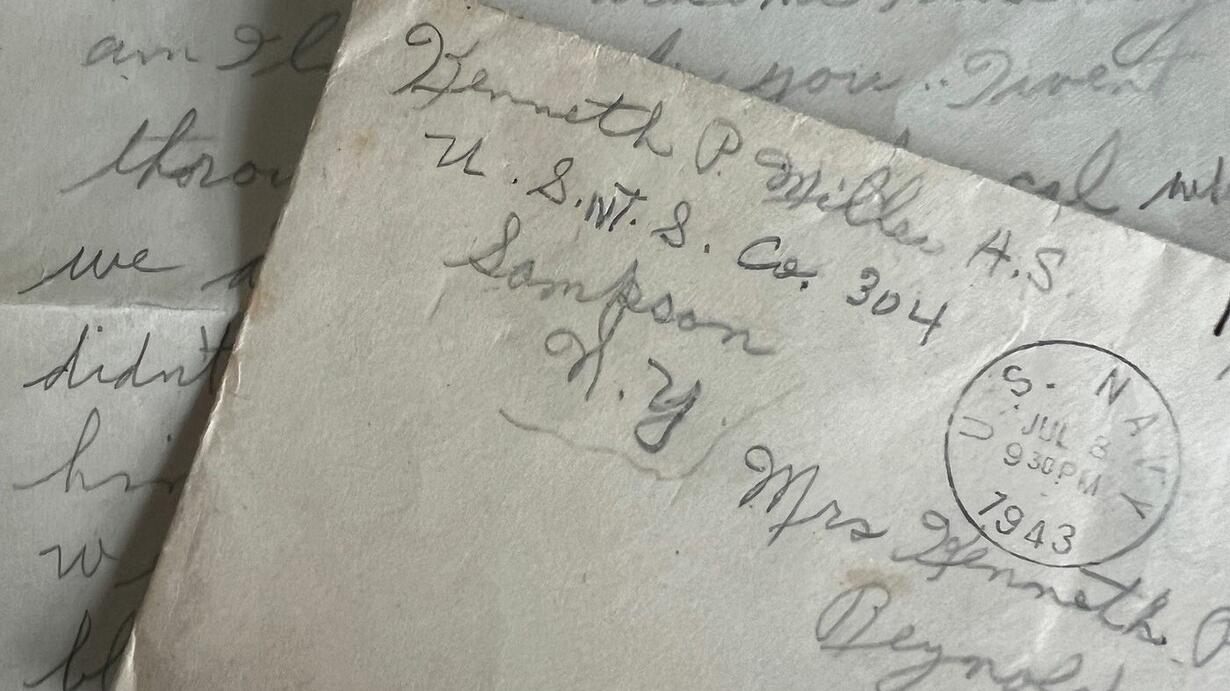 am I
you.. I went
thorou
we
didn't
him
w
bl
Kenneth P. Miller A.S.
U.S.N.T.S. Co. 304
Sampson
N.Y.
U S. NAVY
JUL 8
9 30 PM
1943
Mrs Kenneth P
Reynol